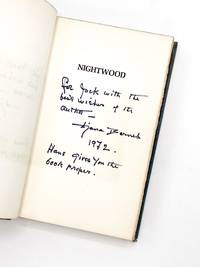 NIGHTWOOD
for Jack with the
best wishes of the
author –
Djuna Barnes
1972.
Hans gives you the
book proper.